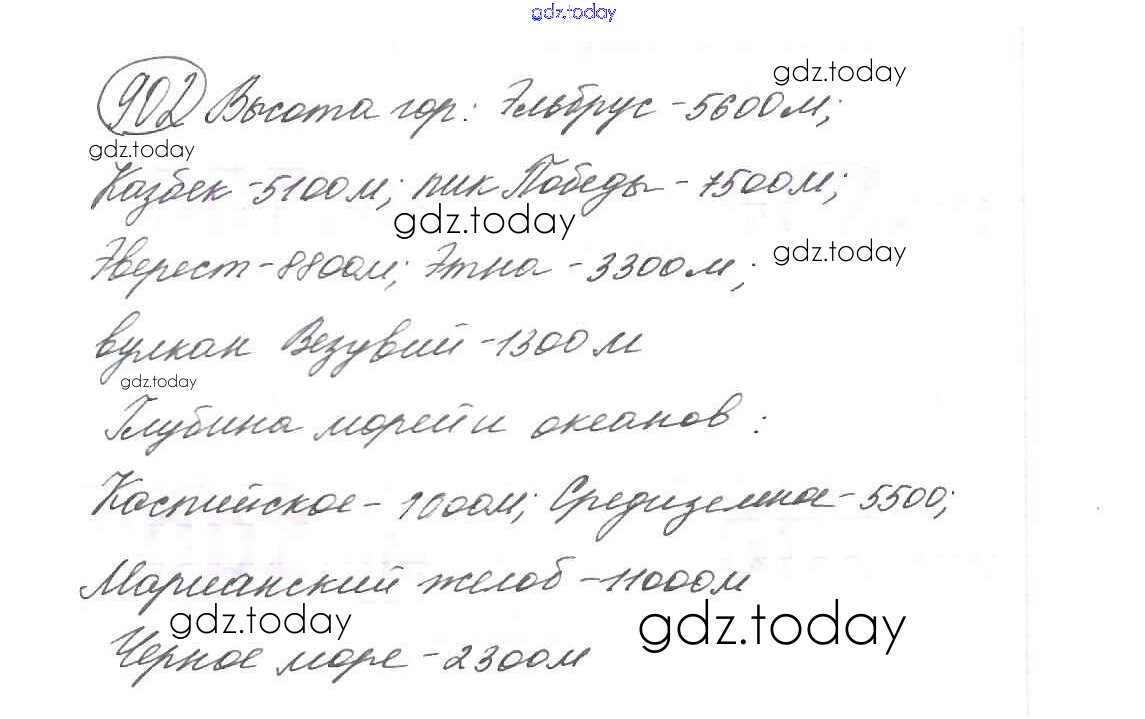 gdz.today
902 Высота гор: Эльбрус - 5600м;
gdz.today
gdz.today
Казбек - 5100м; пик Победы - 7500м;
gdz.today
Эверест - 8800м; Этна - 3300м;
gdz.today
вулкан Везувий - 1300м
gdz.today
Глубина морей и океанов:
Каспийское - 1000м; Средиземное - 5500;
Марианский желоб - 11000м
gdz.today
gdz.today
Черное море - 2300м